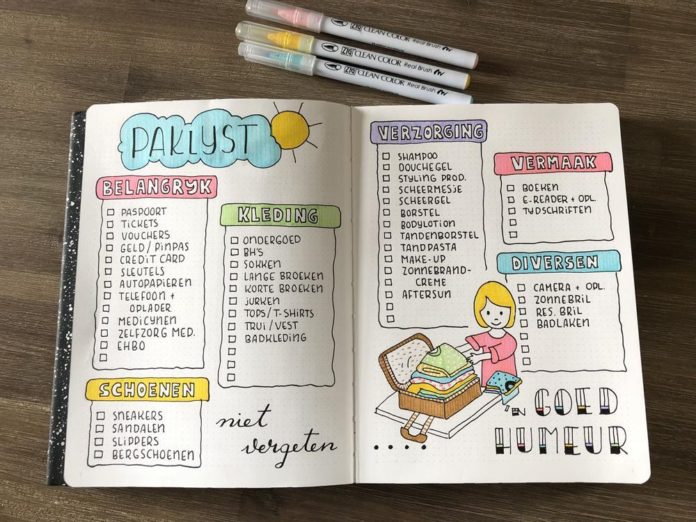 ZIG CLEAN COLOR Real Brush
ZIG CLEAN COLOR Real Brush
ZIG CLEAN COLOR Real Brush
PAKLYST
BELANGRYK
PASPOORT
TICKETS
VOUCHERS
GELD/PINPAS
CREDIT CARD
SLEUTELS
AUTOPAPIEREN
TELEFOON +
OPLADER
MEDICYNEN
ZELFZORG MED.
EHBO
SCHOENEN
SNEAKERS
SANDALEN
SLIPPERS
BERGSCHOENEN
KLEDING
ONDERGOED
BH'S
SOKKEN
LANGE BROEKEN
KORTE BROEKEN
JURKEN
TOPS/T-SHIRTS
TRUI/VEST
BADKLEDING
niet
vergeten
....
VERZORGING
SHAMPOO
DOUCHEGEL
STYLING PROD.
SCHEERMESJE
SCHEERGEL
BORSTEL
BODYLOTION
TANDENBORSTEL
TANDPASTA
MAKE-UP
ZONNEBRAND-
CREME
AFTERSUN
VERMAAK
BOEKEN
E-READER + OPL.
TYDSCHRIFTEN
DIVERSEN
CAMERA + OPL.
ZONNEBRIL
RES. BRIL
BADLAKEN
'N GOED
HUMEUR